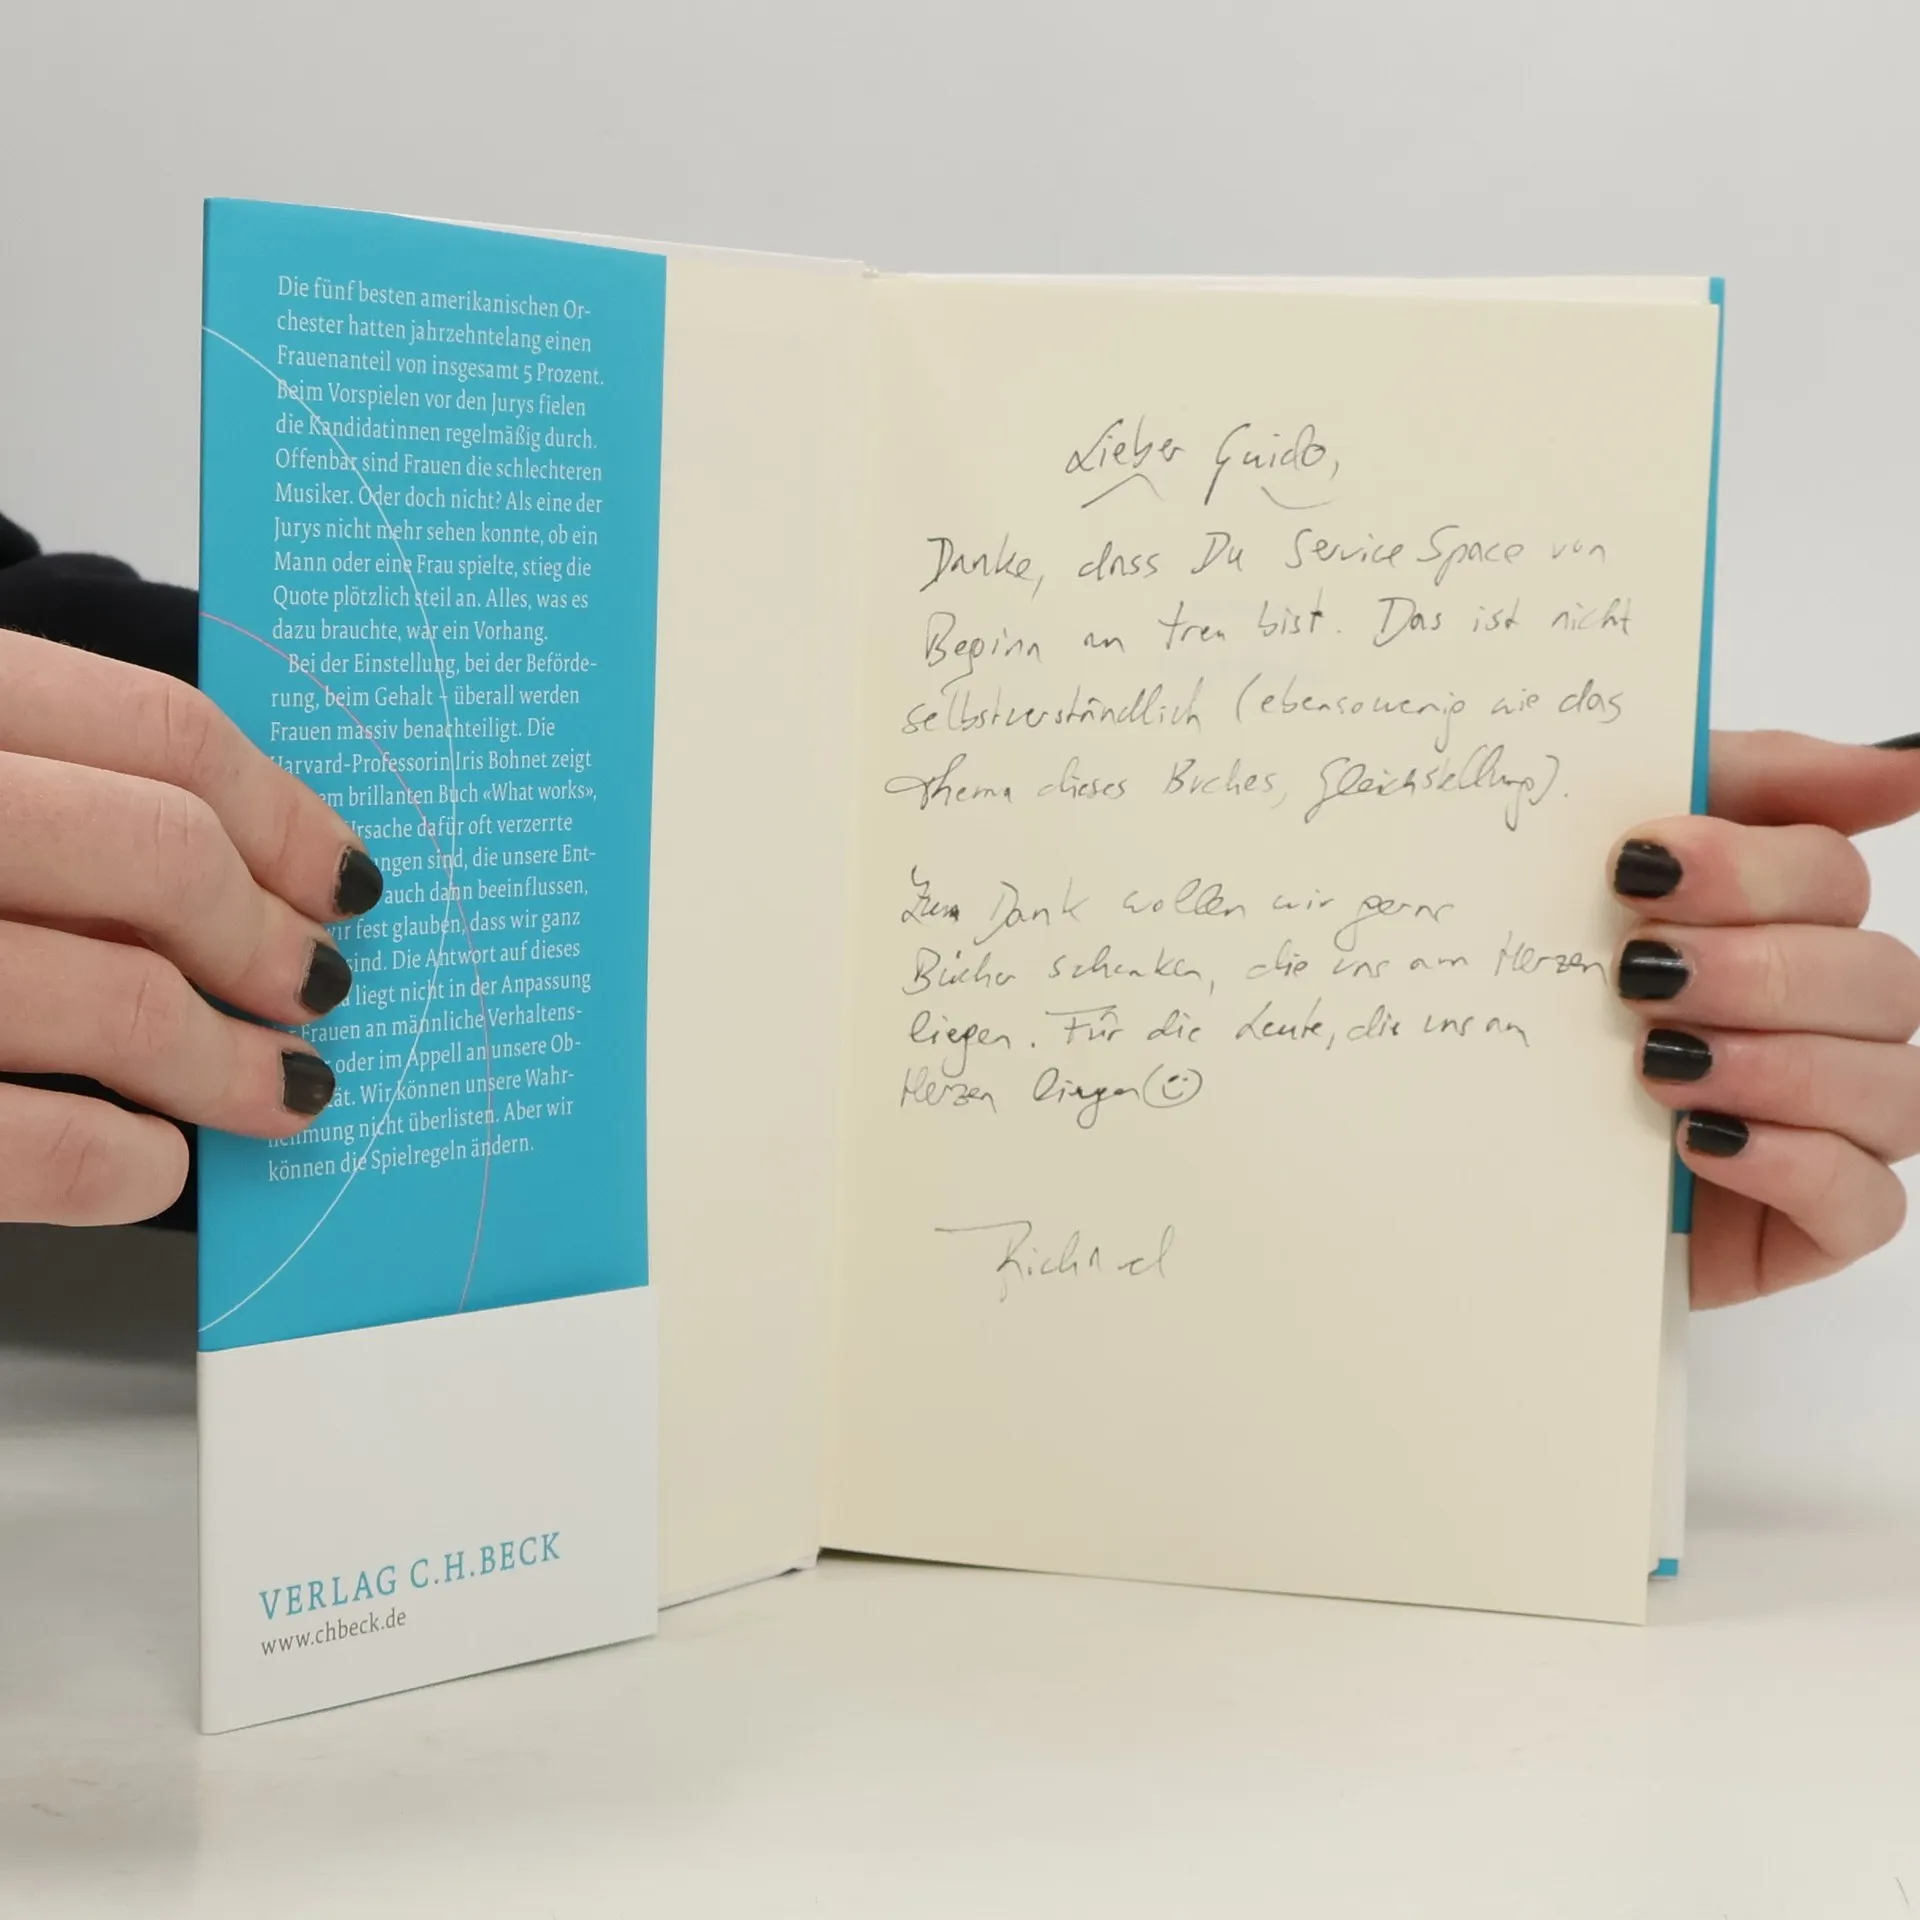 Die fünf besten amerikanischen Or-
chester hatten jahrzehntelang einen
Frauenanteil von insgesamt 5 Prozent.
Beim Vorspielen vor den Jurys fielen
die Kandidatinnen regelmäßig durch.
Offenbar sind Frauen die schlechteren
Musiker. Oder doch nicht? Als eine der
Jurys nicht mehr sehen konnte, ob ein
Mann oder eine Frau spielte, stieg die
Quote plötzlich steil an. Alles, was es
dazu brauchte, war ein Vorhang.
Bei der Einstellung, bei der Beförde-
rung, beim Gehalt – überall werden
Frauen massiv benachteiligt. Die
Harvard-Professorin Iris Bohnet zeigt
em brillanten Buch «What works»,
Ursache dafür oft verzerrte
ngen sind, die unsere Ent-
auch dann beeinflussen,
wir fest glauben, dass wir ganz
sind. Die Antwort auf dieses
liegt nicht in der Anpassung
Frauen an männliche Verhaltens-
oder im Appell an unsere Ob-
ät. Wir können unsere Wahr-
nehmung nicht überlisten. Aber wir
können die Spielregeln ändern.
VERLAG C.H.BECK
www.chbeck.de
Lieber Guido,
Danke, dass Du Service Space von
Beginn an treu bist. Das ist nicht
selbstverständlich (ebensowenig wie das
Thema dieses Buches, Gleichstellung).
Zum Dank wollen wir gerne
Bücher schenken, die uns am Herzen
liegen. Für die Leute, die uns am
Herzen liegen ☺